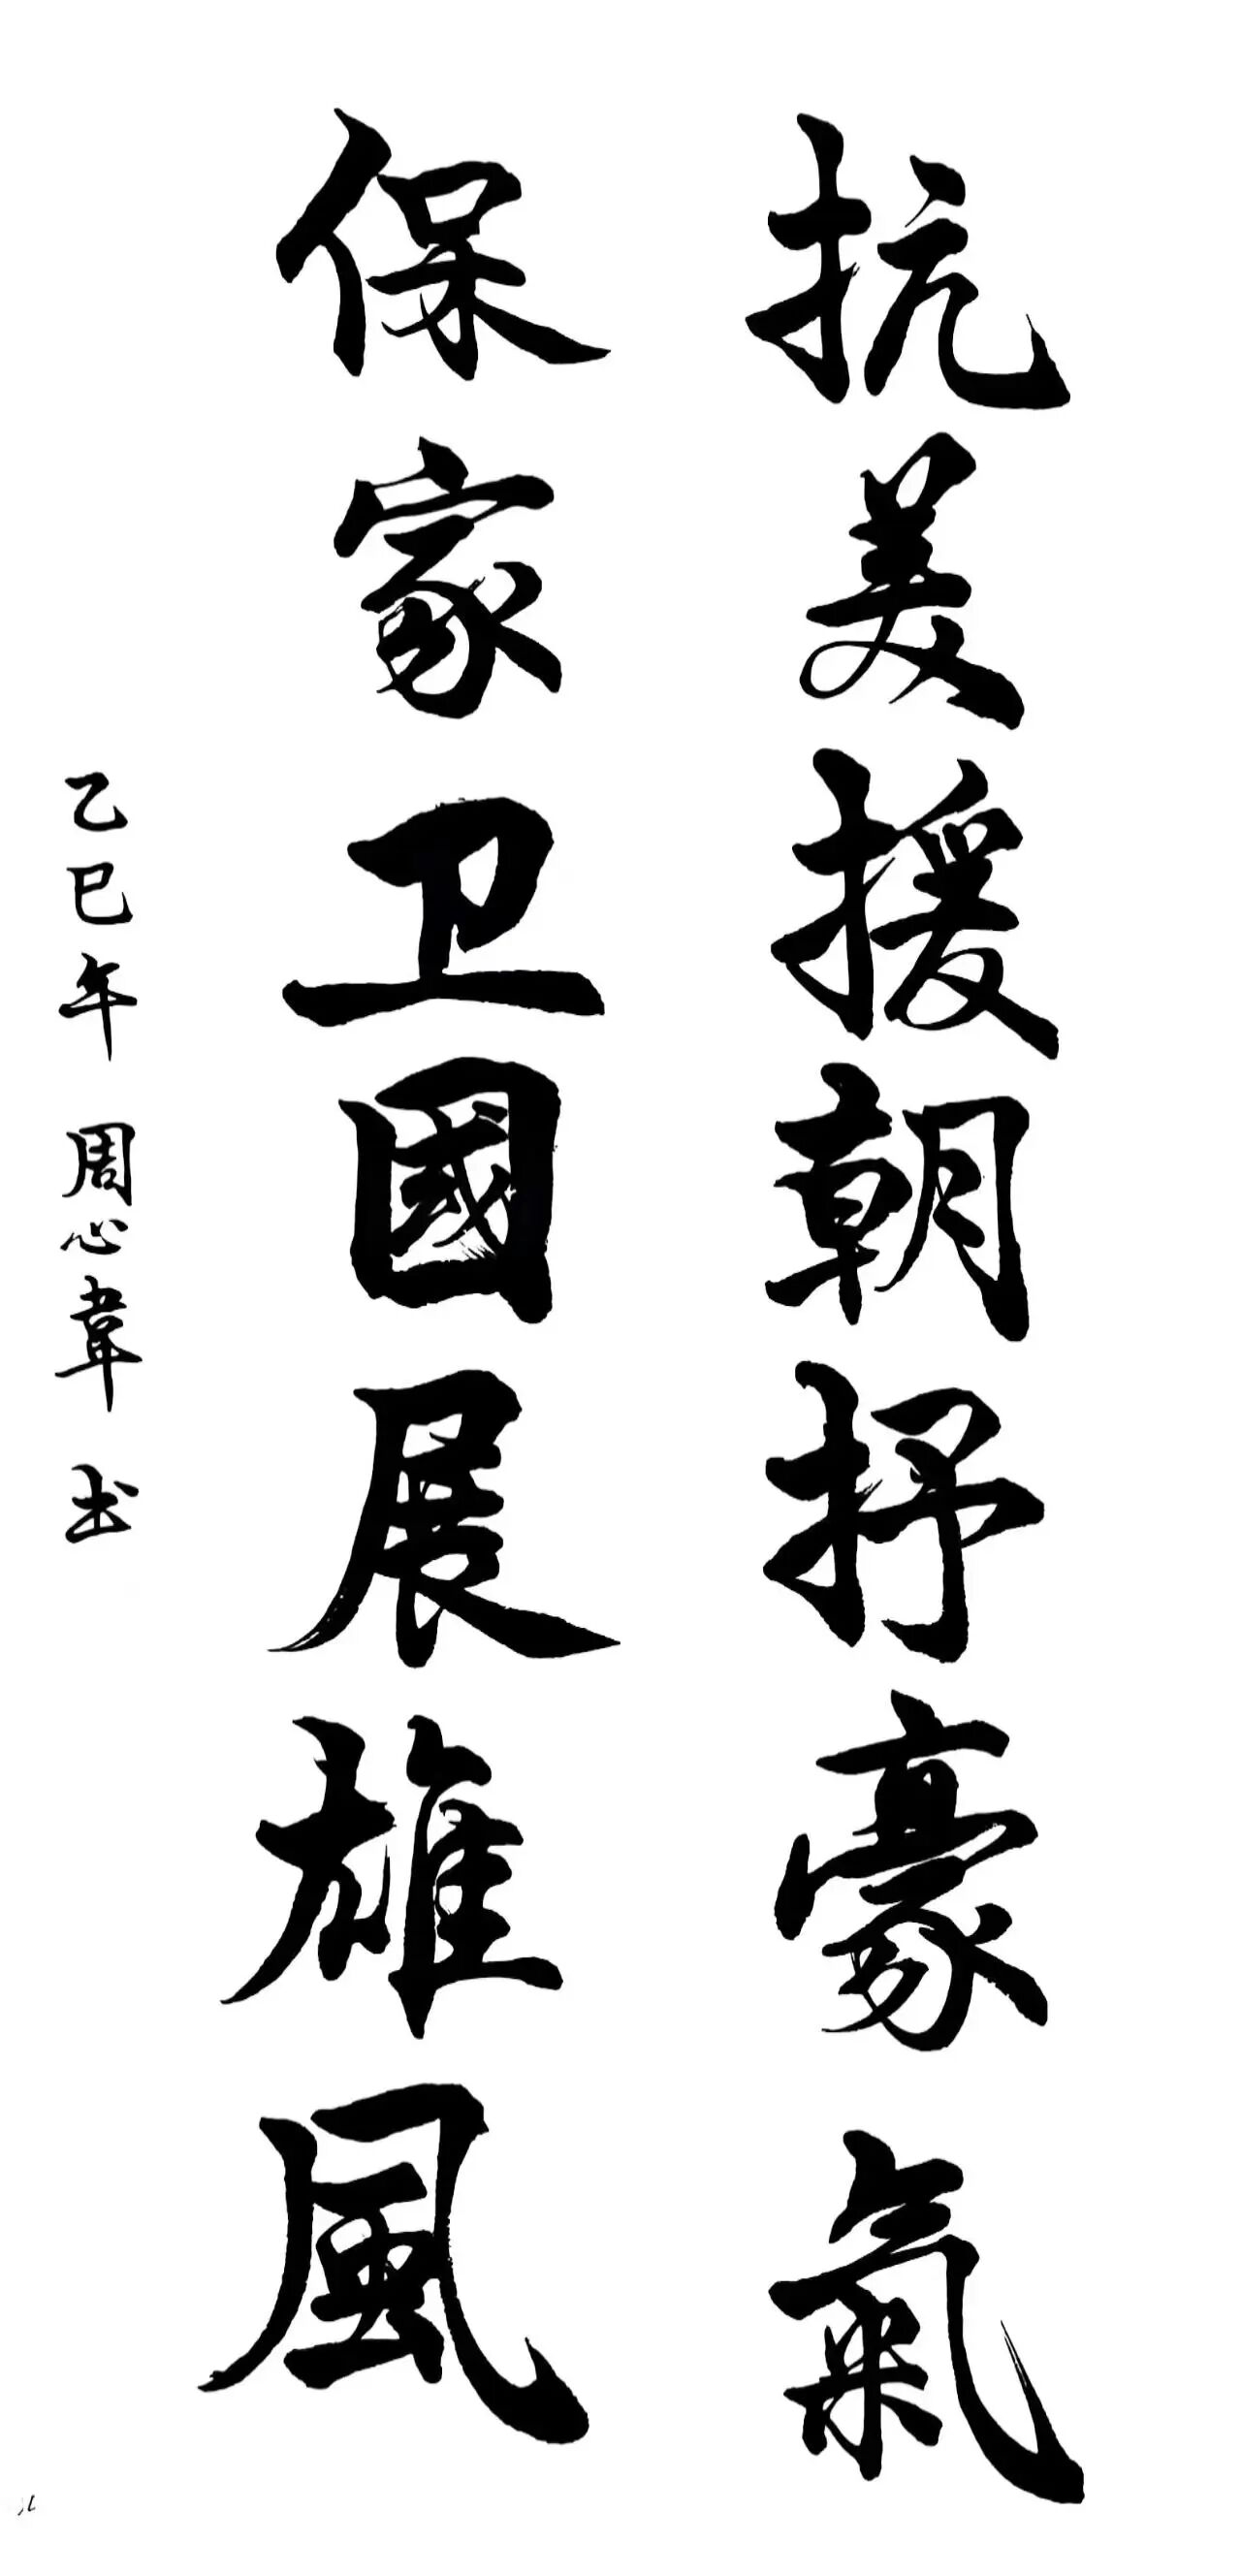 抗美援朝抒豪氣
保家卫國展雄風
乙巳年 周心韋 书